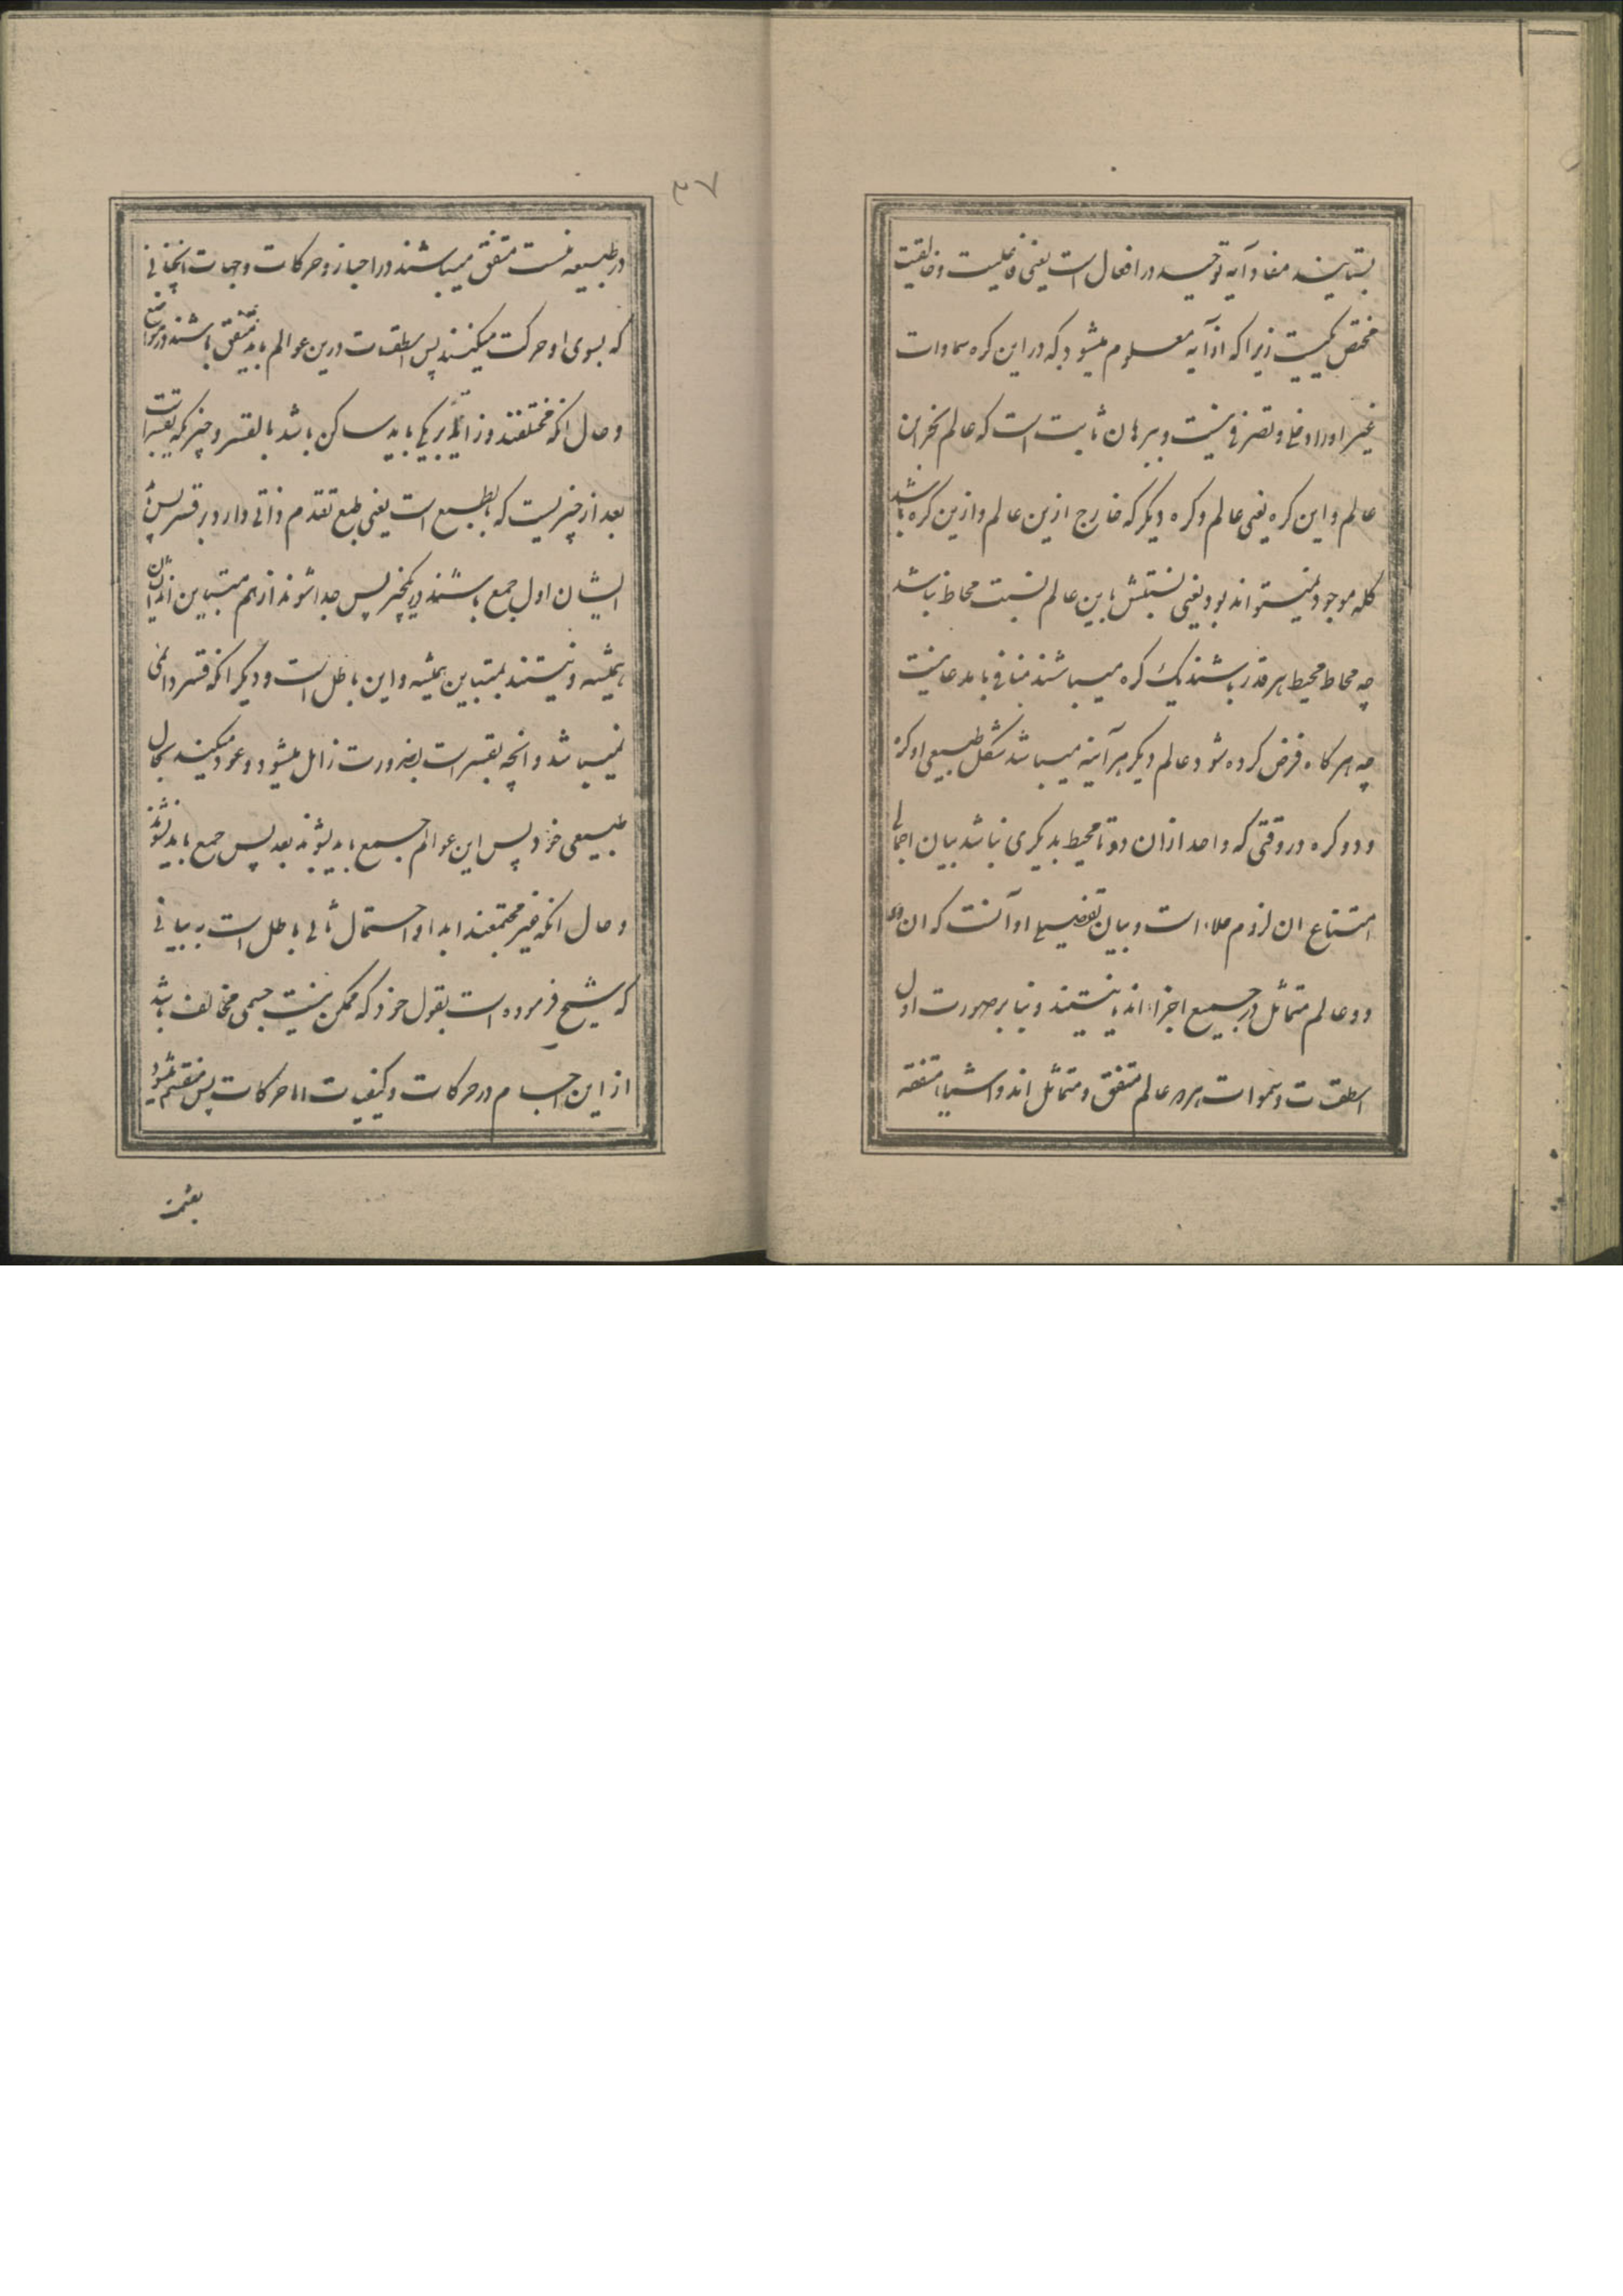 بستایند مفاد آیه توحید در افعال است یعنی فاعلیت و خالقیت
مختص یکیست زیرا که از آیه معلوم میشود که در این کره سماوات
غیر او را دخلی و تصرفی نیست و ببرهان ثابت است که عالم بجز این
عالم و این کره یعنی عالم و کره دیگر که خارج ازین عالم و ازین کره باشد
کله موجود نمیتواند بود یعنی نسبتش باین عالم نسبت محاط نباشد
چه محاط محیط هر قدر باشند یک کره میباشند منافی با مدعا نیست
چه هر کاه فرض کرده شود عالم دیکر هر آینه میباشد شکل طبیعی او کره
و دو کره در وقتی که واحد ازان دو تا محیط بدیکری نباشد بیان اجمالی
امتناع ان لزوم خلاء است و بیان تفضیلی او آنست که ان
دو عالم متماثل در جمیع اجزاء اند یا نیستند و بنا بر صورت اول
اسطقسات و سموات هر دو عالم متفق و متماثل اند و اشیاء متفقه
٣٧
در طبیعه نیست متفق میباشند در احیاز و حرکات و جهات انچنانی
که بسوی او حرکت میکنند پس اسطقسات درین عوالم باید متفق باشند در مواضع
و حال انکه مختلفند و زاید بر یکی باید ساکن باشد بالقسر و حیز که بقسر است
بعد از حیزیست که بالطبع است یعنی طبع تقدم ذاتی دارد بر قسر پس
ایشان اول جمع باشند در یکحیز پس جدا شوند از هم متباین اند ایشان
همیشه و نیستند بمتباین همیشه و این باطل است و دیگر انکه قسر دائمی
نمیباشد و انچه بقسر است بضرورت زائل میشود و عود میکنند بحال
طبیعی خود پس این عوالم جمیع باید بشوند بعد پس جمع باید نشوند
و حال انکه غیر مجتمعند ابدا و احتمال ثانی باطل است به بیانی
که شیخ فرموده است بقول خود که ممکن نیست جسمی مخالف باشد
از این اجسام در حرکات و کیفیات اما حرکات پس منقسم میشود
بقسمت